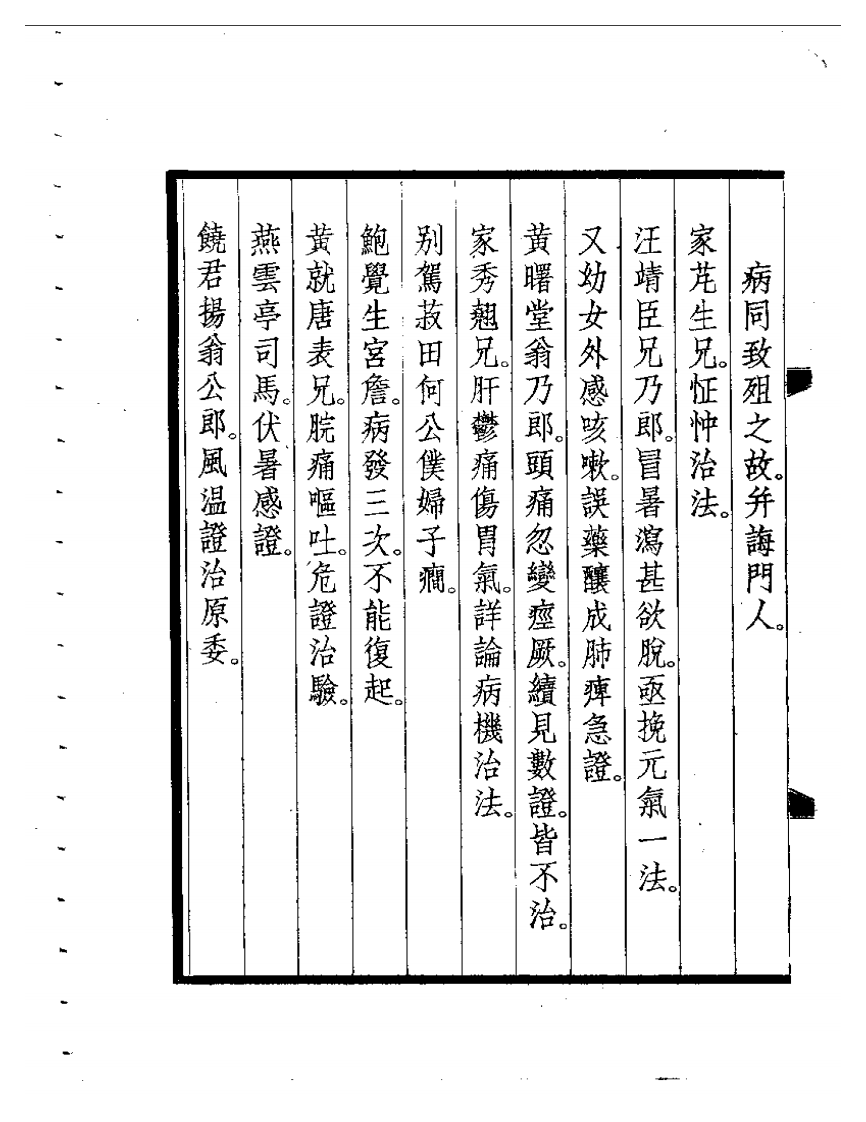 病同致殂之故。弁誨門人。
家芘生兄。怔忡治法。
汪靖臣兄乃郎。冒暑瀉甚欲脫。亟挽元氣一法。
又幼女外感咳嗽。誤藥釀成肺痺急證。
黃曙堂翁乃郎。頭痛忽變痙厥。續見數證。皆不治。
家秀翹兄。肝鬱痛傷胃氣。詳論病機治法。
別駕菽田何公僕婦子癇。
鮑覺生宮詹。病發三次。不能復起。
黃就唐表兄。脘痛嘔吐。危證治驗。
燕雲亭司馬。伏暑感證。
饒君揚翁公郎。風温證治原委。